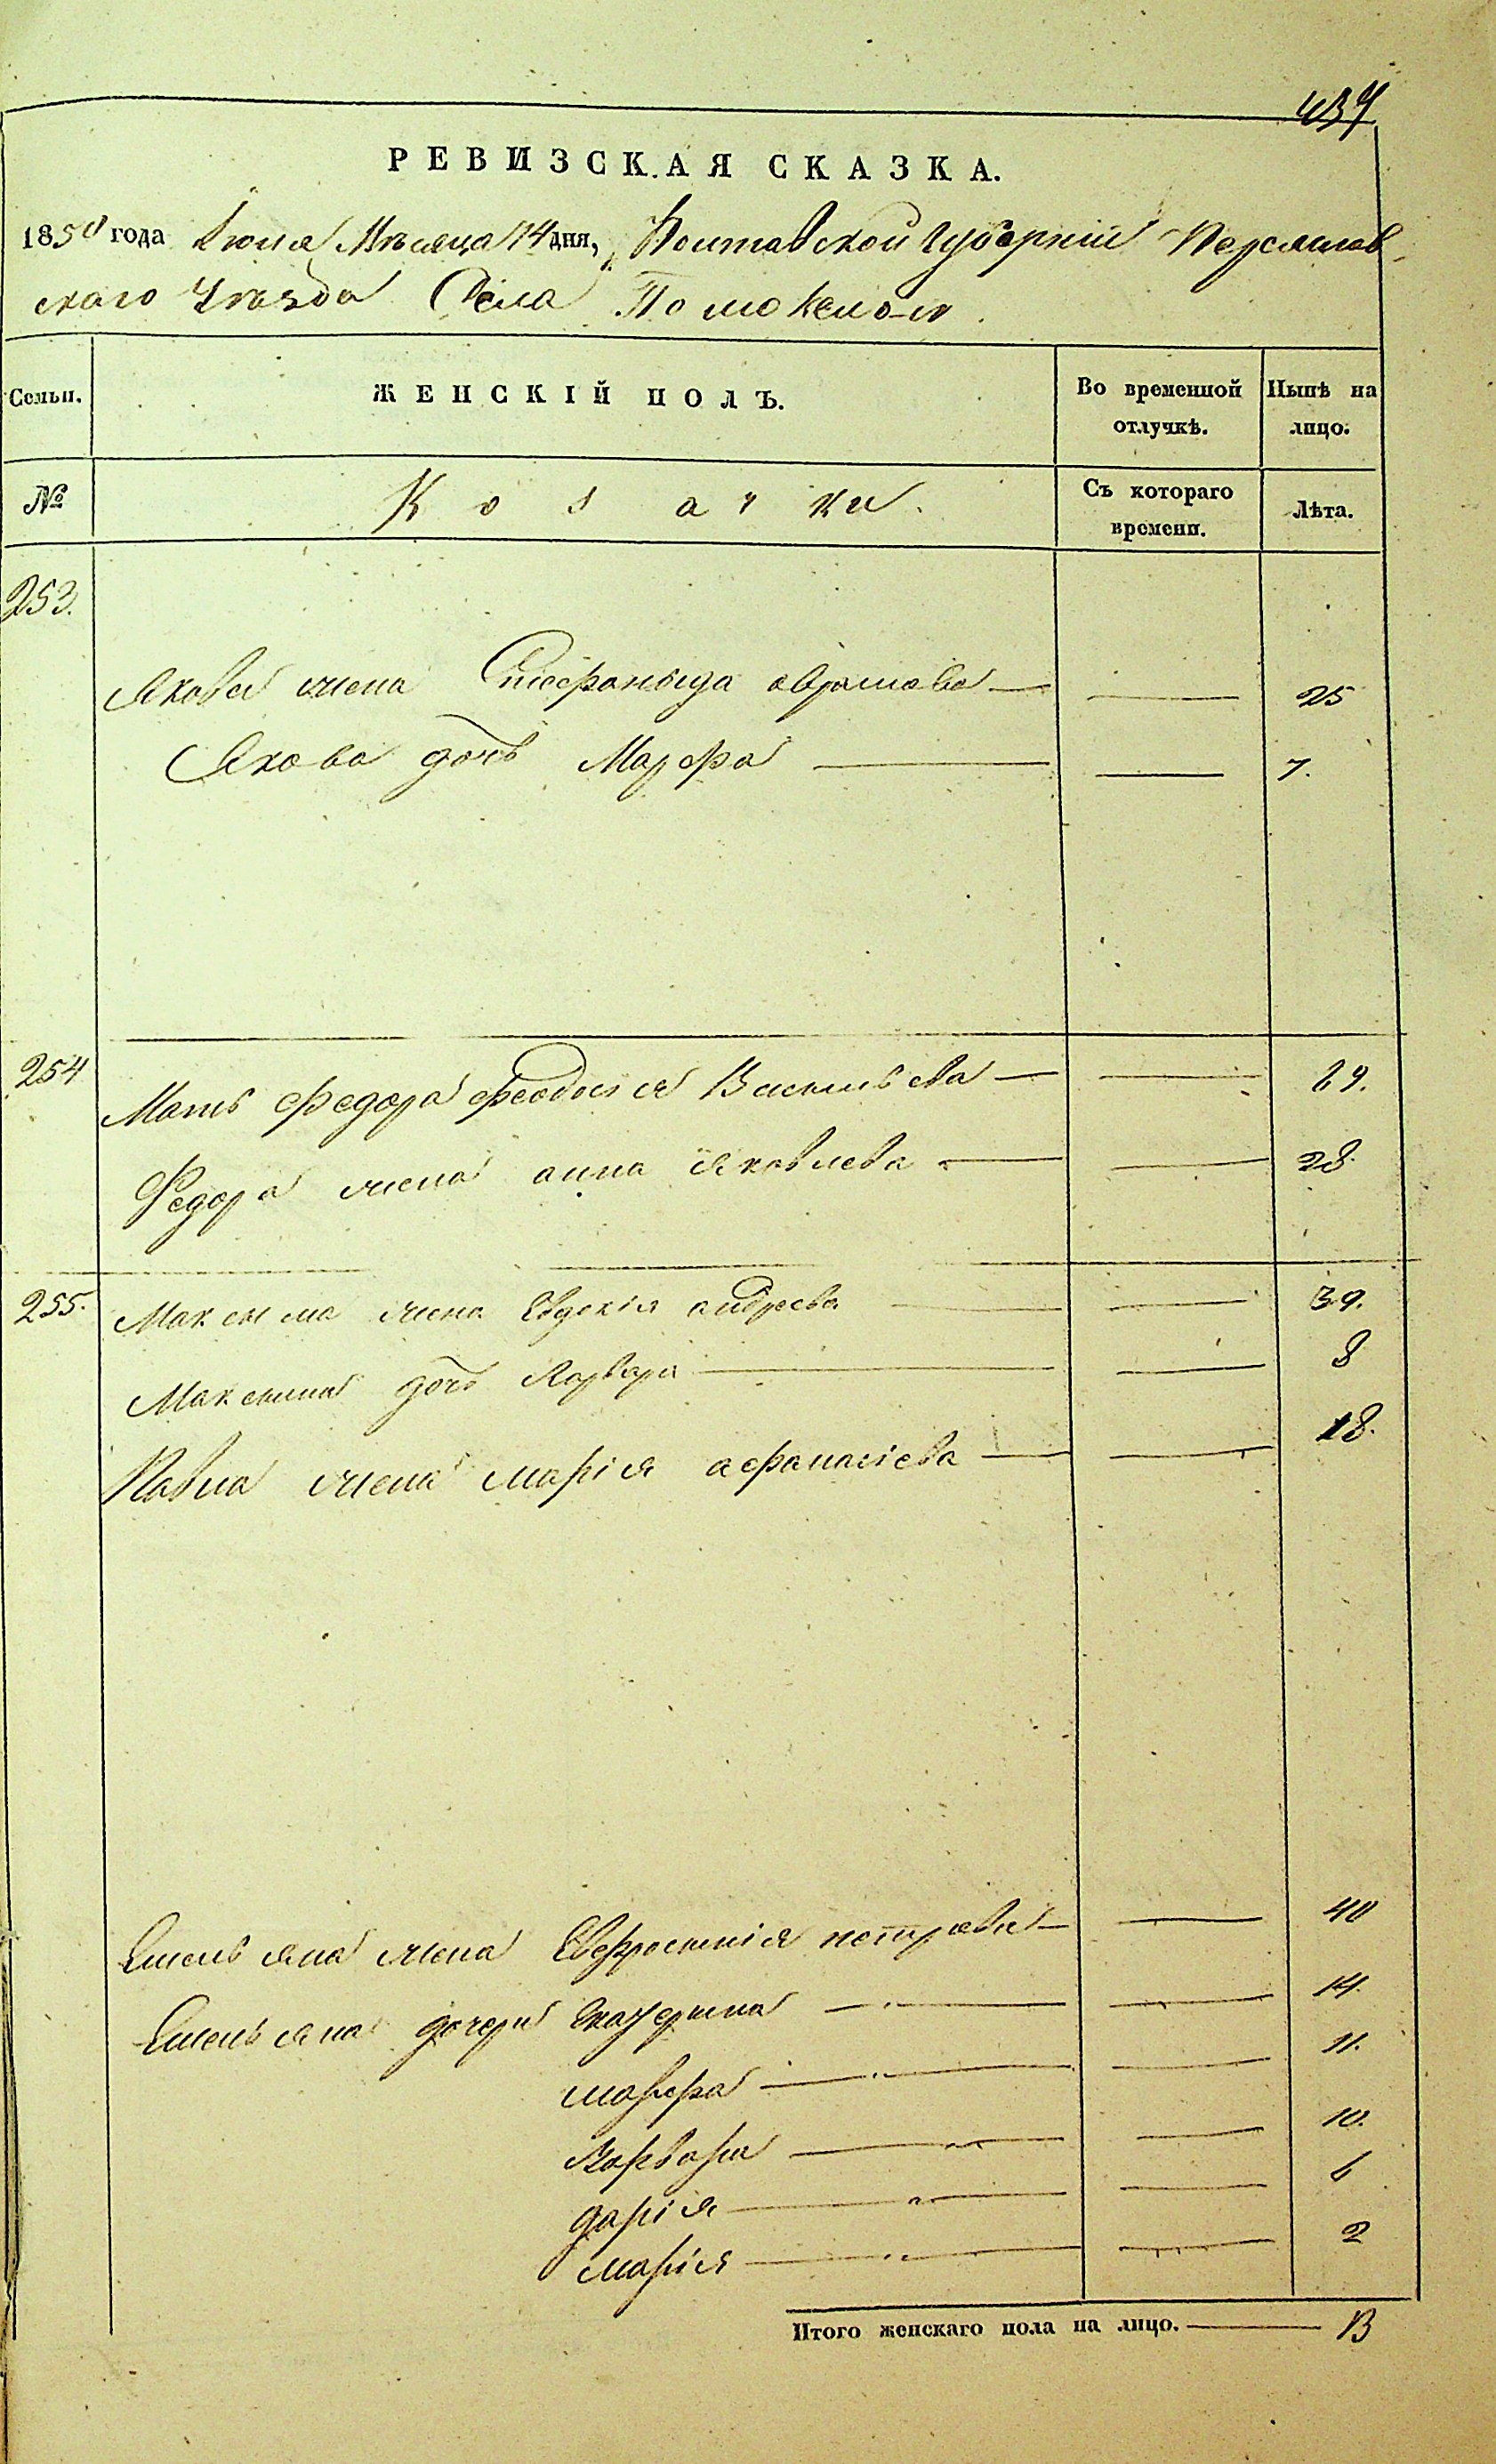 РЕВИЗСКАЯ СКАЗКА.
1850 года Июня Мѣсяца 14 дня, Полтавской Губерніи Переяслав-
скаго Уѣзда Села
Семьи. ЖЕНСКІЙ ПОЛЪ. Во временной отлучкѣ. Нынѣ на лицо.
№ Козачки. Съ котораго времени. Лѣта.
253.
Якова жена Стефанида аврамова — — 25
Якова дочь Марфа — — 7.
254 Мать Федора Феодосія Васильева — — 69.
Федора жена анна Яковлева — — 28.
255. Максима жена Евдокія андреева — — 39.
Максима дочь Варвара — — 8
Павла жена марія афанасіева — — 18.
Емельяна жена Евфросинія петрова — — 40
Емельяна дочери Екатерина — — 14.
марфа — — 11.
Варвара — — 10.
дарія — — 6
марія — — 2
Итого женскаго пола на лицо. — 13